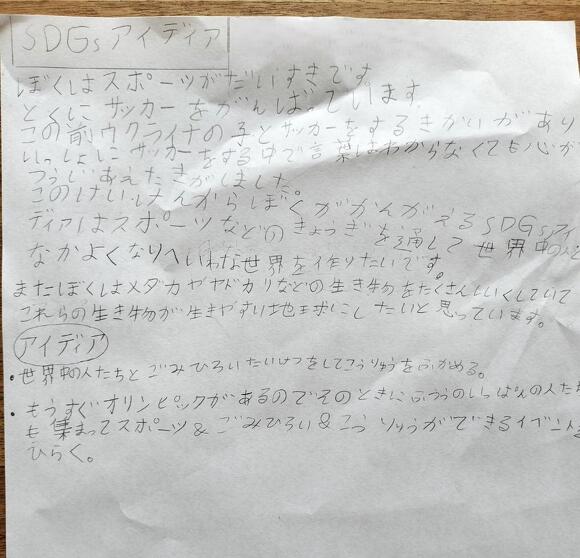 SDGsアイディア
ぼくはスポーツがだいすきです。
とくにサッカーをがんばっています。
この前ウクライナの子とサッカーをするきかいがあり
いっしょにサッカーをする中で言葉はわからなくても心が
つうじあえたきがしました。
このけいけんからぼくがかんがえるSDGsアイ
ディアはスポーツなどのきょうぎを通して世界中の人と
なかよくなりへいわな世界を作りたいです。
またぼくはメダカやヤドカリなどの生き物をたくさんしいくしていて
これらの生き物が生きやすい地球にしたいと思っています。
アイディア
・世界中の人たちとごみひろいたいけつをしてこうりゅうをふかめる。
・もうすぐオリンピックがあるのでそのときにふつうのいっぱんの人たち
も集まってスポーツ&ごみひろい&こうりゅうができるイベントを
ひらく。